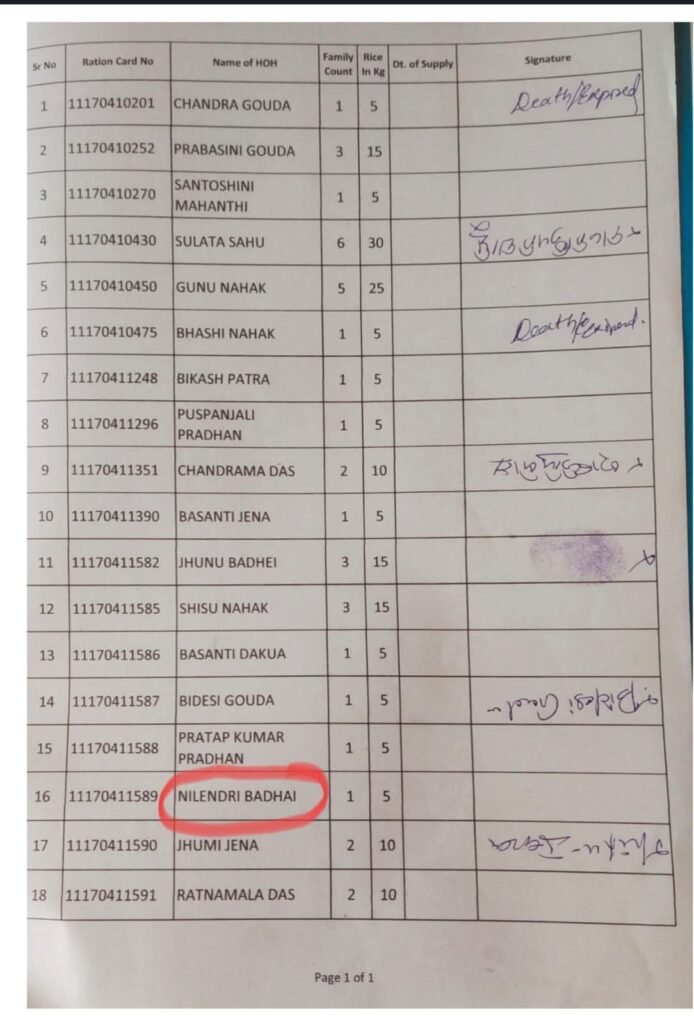 Sr No Ration Card No Name of HOH Family Count Rice In Kg Dt. of Supply Signature
1 11170410201 CHANDRA GOUDA 1 5 Death/Expired
2 11170410252 PRABASINI GOUDA 3 15
3 11170410270 SANTOSHINI MAHANTHI 1 5
4 11170410430 SULATA SAHU 6 30
5 11170410450 GUNU NAHAK 5 25
6 11170410475 BHASHI NAHAK 1 5 Death/Expired.
7 11170411248 BIKASH PATRA 1 5
8 11170411296 PUSPANJALI PRADHAN 1 5
9 11170411351 CHANDRAMA DAS 2 10
10 11170411390 BASANTI JENA 1 5
11 11170411582 JHUNU BADHEI 3 15
12 11170411585 SHISU NAHAK 3 15
13 11170411586 BASANTI DAKUA 1 5
14 11170411587 BIDESI GOUDA 1 5 Bidesi
15 11170411588 PRATAP KUMAR PRADHAN 1 5
16 11170411589 NILENDRI BADHAI 1 5
17 11170411590 JHUMI JENA 2 10 Jena
18 11170411591 RATNAMALA DAS 2 10
Page 1 of 1